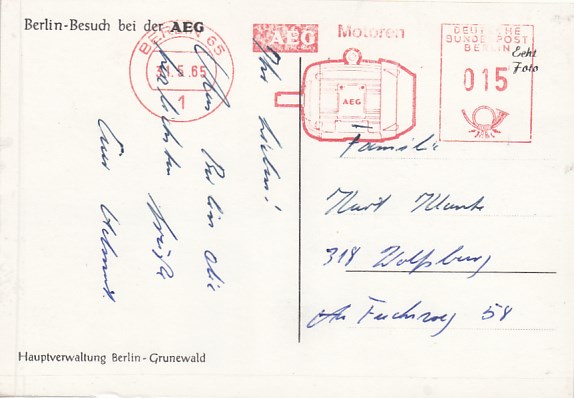 Berlin-Besuch bei der AEG
BERLIN 65
11.5.65
1
AEG Motoren
AEG
DEUTSCHE
BUNDESPOST
BERLIN
015
Echt
Foto
Ihr Lieben!
Aus Berlin die
herzlichsten Grüße
Euer Helmut.
Familie
Kurt
318 Wolfsburg
58
Hauptverwaltung Berlin-Grunewald